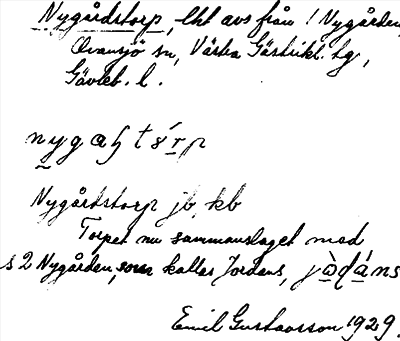 Nygårdstorp, lht avs från 1 Nygården,
Ovansjö sn, Västra Gästrikl. tg,
Gävleb. l.
Nygårdstorp jb, kb
Torpet nu sammanslaget med
s 2 Nygården, som kallas Jordens,
Emil Gustavsson 1929.